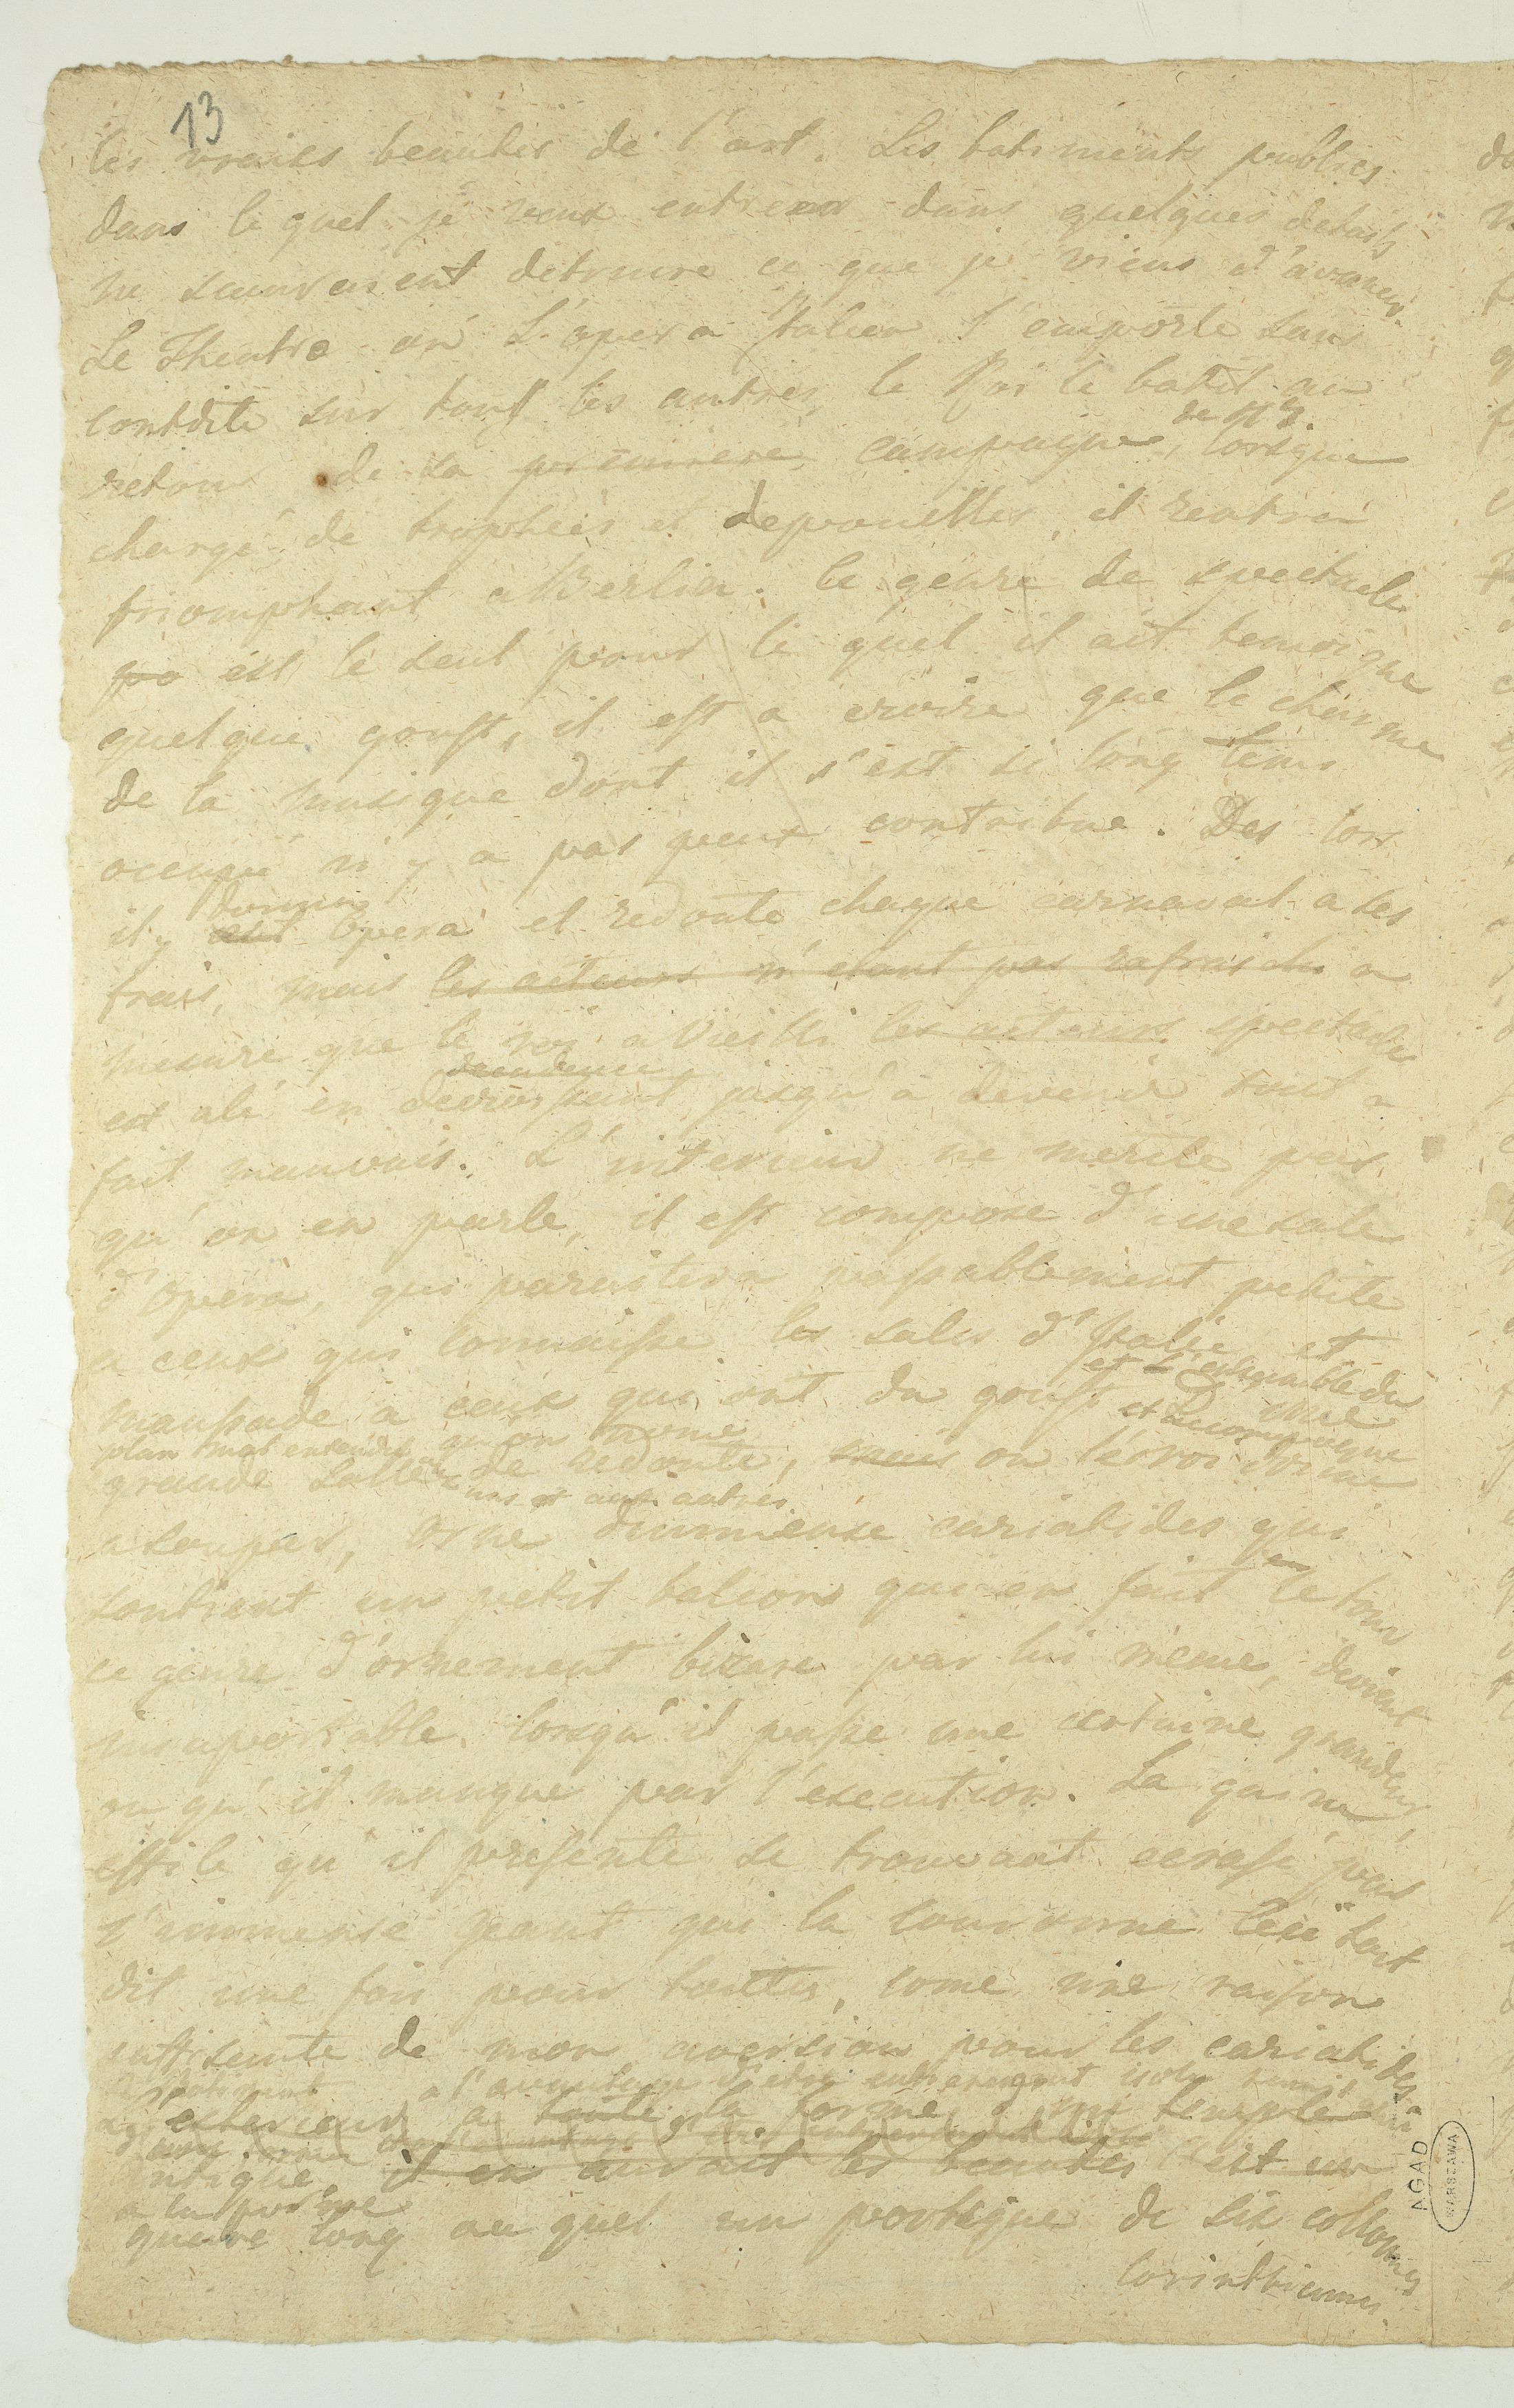 13
les vraies beautés de l'art. Les batiments publics
dans le quel je veux entrer dans quelques details
ne sauraient detruire ce que je viens d'avancer.
Le Theatre ou L'opera Italien l'emporte sans
contdite sur tout les autres, le Roi le batit au
de
retour de sa premiere campagne, lorsque
chargé de trophées et depouilles, il rentra
triomphant a Berlin. Ce genre de spectacle
po est le seul pour le quel il ait temoigne
quelque goust, il est a croire que le charme
de la musique dont il s'est si long tems
occupé n'y a pas peux contribue. Des lors
donna
il y eut opera et redoute chaque carnaval a ses
frais, mais les acteurs n'etant pas rafraichi a
mesure que le roi a vieilli les acteurs spectacle
decadence
est alé en decroissant jusqu'a devenir tout a
fait mauvais. L'interieur ne merite pas
qu'on en parle, il est compose d'une sale
d'opera, qui paraitera passablement petite
a ceux qui connaisse les sales d'Italie et
et l'ensemble du
maussade a ceux qui ont du goust et une
plan mal entendu qu'on nome
grande salle de redoute, mais on le roi donne
uns et aux autres
a souper, orné d'immense cariatides qui
en
soutient un petit balcons qui en fait le tour
ce genre d'ornement bizare par lui meme, devient
insuportable, lorsqu'il passe une certaine grandeur,
ou qu'il manque par l'execution. La gaine
effilé qu'il presente se trouvant ecrasé par
l'immense geant qui la couronne Ceci soit
dit une fois pour toutes, come une raison
suffisente de mon aversion pour les cariatides.
a l'avantage d'etre entierement isolé
L'exterieur a toute la forme d'un temple
antique, il en aurait les beautes c'est un
a la forme
quarré long au quel un portique de six collones
Corinthiennes.
AGAD
WARSZAWA